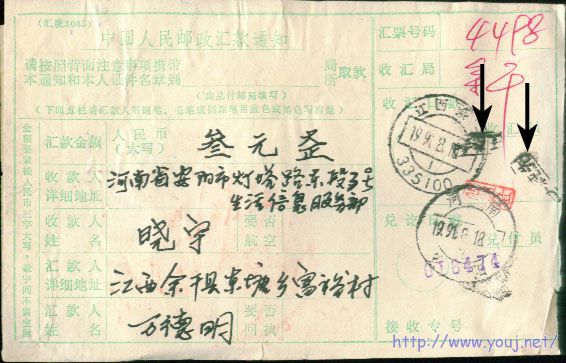 (汇统3605)
中国人民邮政汇款通知
请按照背面注意事项携带
本通知和本人证件名章到
局
所
取款
(由兑付局填写)
(下面五栏请汇款人用钢笔、毛笔或圆珠笔用蓝色或黑色写清楚)
汇票号码
4498
收汇局
金额要紧接人民币三字大写,数字间不留空隙
汇款金额
人民币
(大写)
叁元正
收款人
详细地址
河南省安阳市灯塔路东段3号
生活信息服务部
收款人
姓名
晓宇
要否
航空
汇款人
详细地址
江西余干县东塘乡富裕村
汇款人
姓名
万德明
要回
否执
江西
335100
河南
兑付员
016474
接收专号
http://www.youj.net/